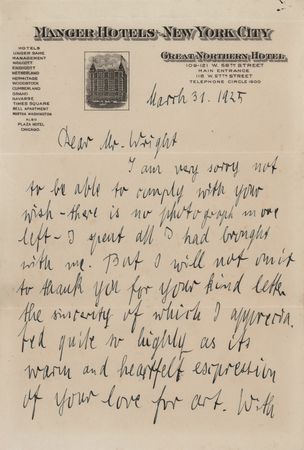 MANGER HOTELS-NEW YORK CITY
HOTELS
UNDER SAME
MANAGEMENT
WOLCOTT
ENDICOTT
NETHERLAND
HERMITAGE
WOODSTOCK
CUMBERLAND
GRAND
NAVARRE
TIMES SQUARE
BELL APARTMENT
MARTHA WASHINGTON
ALSO
PLAZA HOTEL
CHICAGO.
GREAT NORTHERN HOTEL
109-121 W. 56TH STREET
MAIN ENTRANCE
118 W. 57TH STREET
TELEPHONE CIRCLE 1900
March 31. 1925
Dear Mr. Wright
I am very sorry not
to be able to comply with your
wish - there is no photograph more
left - I spent all I had brought
with me. But I will not omit
to thank you for your kind letter
the sincerity of which I apprecia-
ted quite so highly as its
warm and heartfelt expression
of your love for art. With